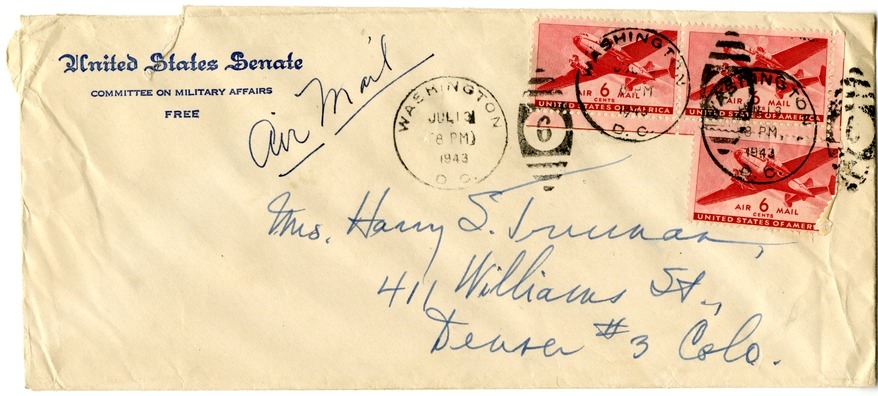 United States Senate
COMMITTEE ON MILITARY AFFAIRS
FREE
Air Mail
WASHINGTON
JUL 13
8 PM
1943
D. C.
6
WASHINGTON
PM
D. C.
WASHINGTON
8 PM
1943
D. C.
AIR 6 MAIL
CENTS
UNITED STATES OF AMERICA
AIR 6 MAIL
CENTS
UNITED STATES OF AMERICA
AIR 6 MAIL
CENTS
UNITED STATES OF AMER
Mrs. Harry S. Truman,
411 Williams St.,
Denver #3 Colo.